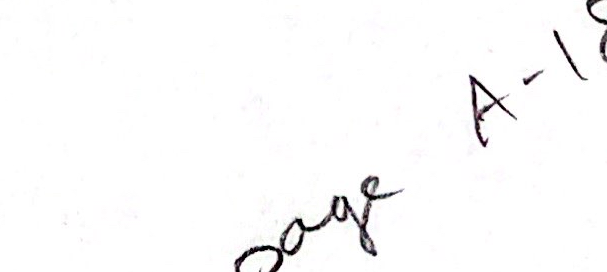 page A-18